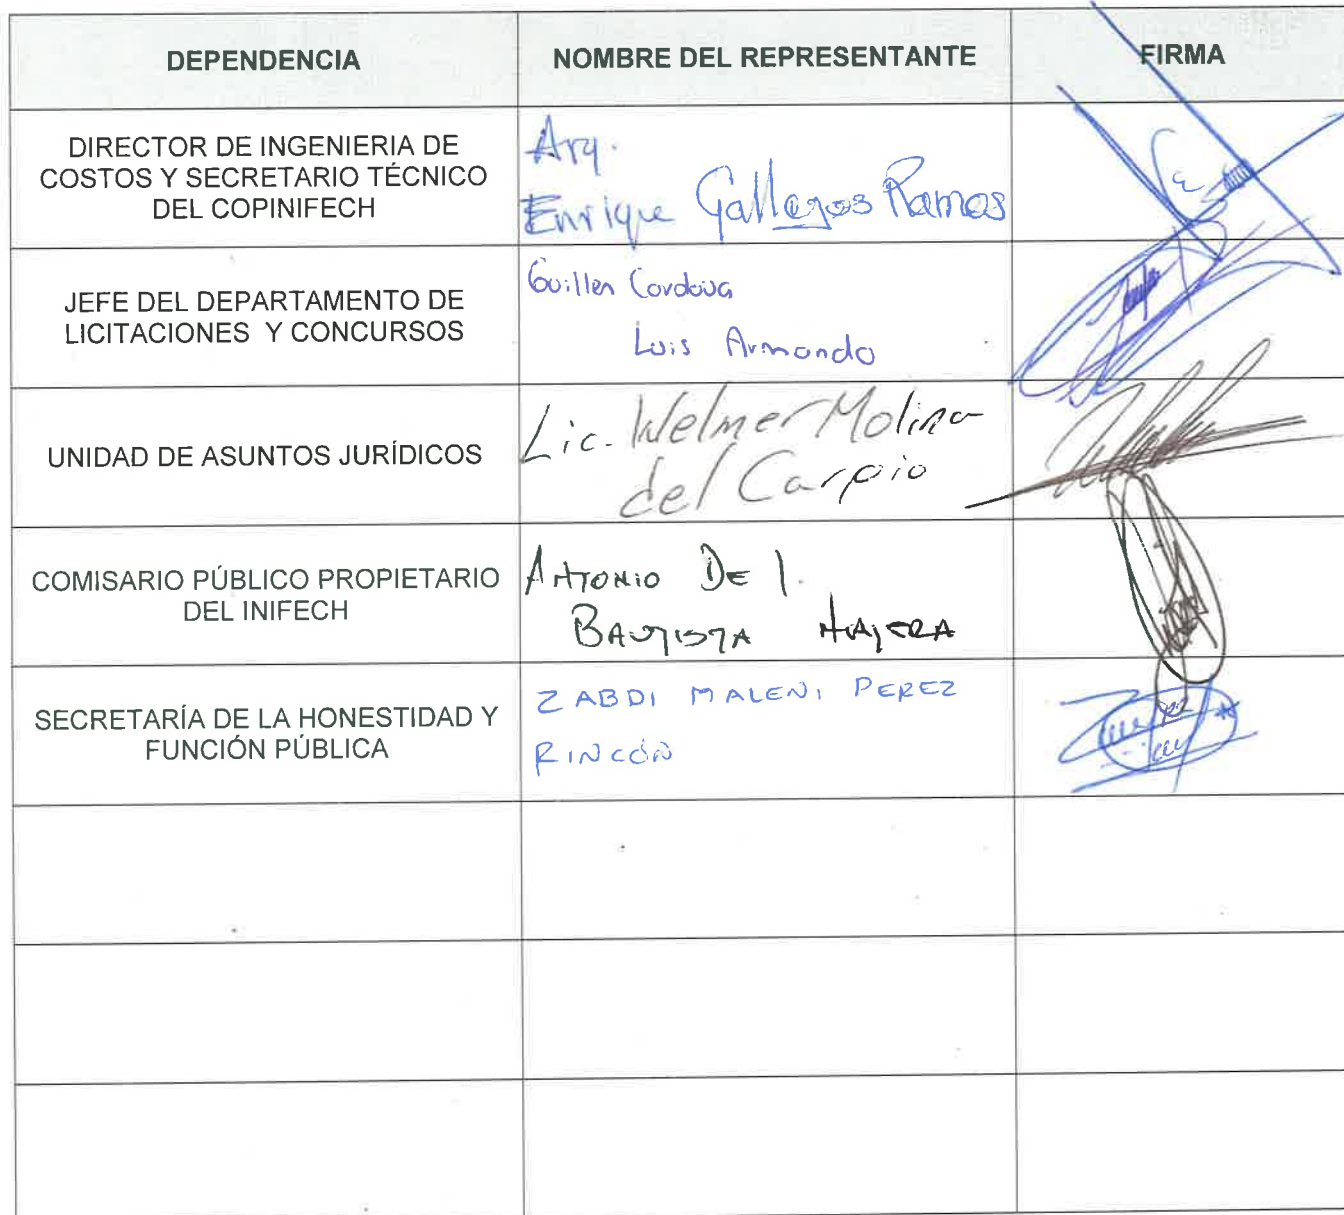 DEPENDENCIA
NOMBRE DEL REPRESENTANTE
FIRMA
DIRECTOR DE INGENIERIA DE
COSTOS Y SECRETARIO TÉCNICO
DEL COPINIFECH
Arq.
Enrique Gallegos Ramos
JEFE DEL DEPARTAMENTO DE
LICITACIONES Y CONCURSOS
Guillen Cordova
Luis Armando
UNIDAD DE ASUNTOS JURÍDICOS
Lic. Welmer Molina
del Carpio
COMISARIO PÚBLICO PROPIETARIO
DEL INIFECH
ANTONIO DE
BAUTISTA
SECRETARÍA DE LA HONESTIDAD Y
FUNCIÓN PÚBLICA
ZABDI MALENI PEREZ
RINCÓN